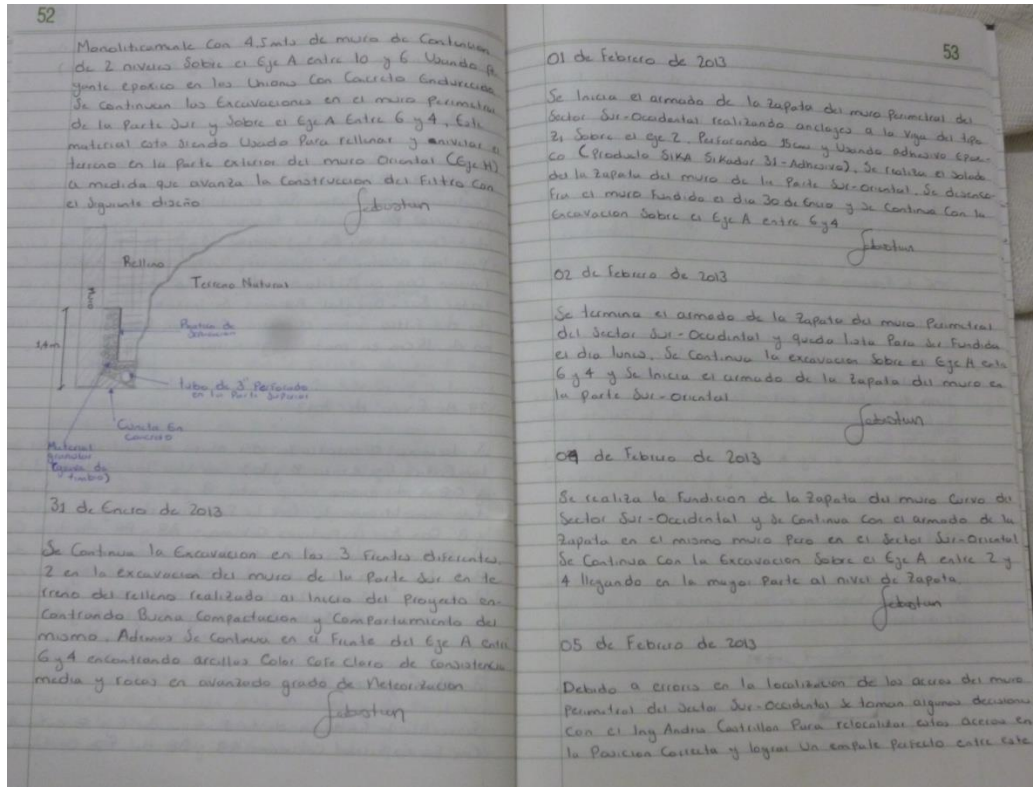 52
Monoliticamente con 4.5mts de muro de Contencion
de 2 niveles Sobre el Eje A entre 10 y 6 Usando
puente epoxico en las Uniones Con Concreto Endurecido
Se Continuan las Excavaciones en el muro Perimetral
de la Parte Sur y Sobre el Eje A Entre 6 y 4, Este
material esta Siendo Usado Para rellenar y nivelar el
terreno en la Parte exterior del muro Oriental (Eje H)
a medida que avanza la Construccion del Filtro Con
el Siguiente diseño
Sebastian
Relleno
Terreno Natural
Muro
Pantalla de
1,4m
tubo de 3" Perforado
en la Parte Superior
Cuneta En
Concreto
Material
granular
31 de Enero de 2013
Se Continua la Excavacion en los 3 Frentes diferentes,
2 en la excavacion del muro de la Parte Sur en te
rreno del relleno realizado al Inicio del Proyecto en-
contrando Buena Compactacion y Comportamiento del
mismo. Ademas Se Continua en el Frente del Eje A entre
6 y 4 encontrando arcillas Color Café Claro de Consistencia
media y rocas en avanzado grado de Meteorizacion
Sebastian
53
01 de Febrero de 2013
Se Inicia el armado de la Zapata del muro Perimetral del
Sector Sur-Occidental realizando anclajes a la Viga del tipo
Z1 Sobre el eje 2. Perforando 15cm y Usando adhesivo epoxi-
co (Producto SIKA Sikadur 31-Adhesivo). Se realiza el Solado
de la Zapata del muro de la Parte Sur-Oriental. Se desenco-
fra el muro Fundido el dia 30 de Enero y Se Continua Con la
Excavacion Sobre el Eje A entre 6 y 4
Sebastian
02 de Febrero de 2013
Se termina el armado de la Zapata del muro Perimetral
del Sector Sur-Occidental y queda lista Para Ser Fundida
el dia lunes. Se Continua la excavacion Sobre el Eje A entre
6 y 4 y Se Inicia el armado de la Zapata del muro en
la Parte Sur-Oriental
Sebastian
04 de Febrero de 2013
Se realiza la Fundicion de la Zapata del muro Curvo del
Sector Sur-Occidental y Se Continua Con el armado de la
Zapata en el mismo muro Pero en el Sector Sur-Oriental
Se Continua Con la Excavacion Sobre el Eje A entre 2 y
4 llegando en la mayor Parte al nivel de Zapata
Sebastian
05 de Febrero de 2013
Debido a errores en la localizacion de los aceros del muro
Perimetral del Sector Sur-Occidental Se toman algunas decisiones
Con el Ing Andres Castrillon Para relocalizar estos aceros en
la Posicion Correcta y lograr Un empalme Perfecto entre este